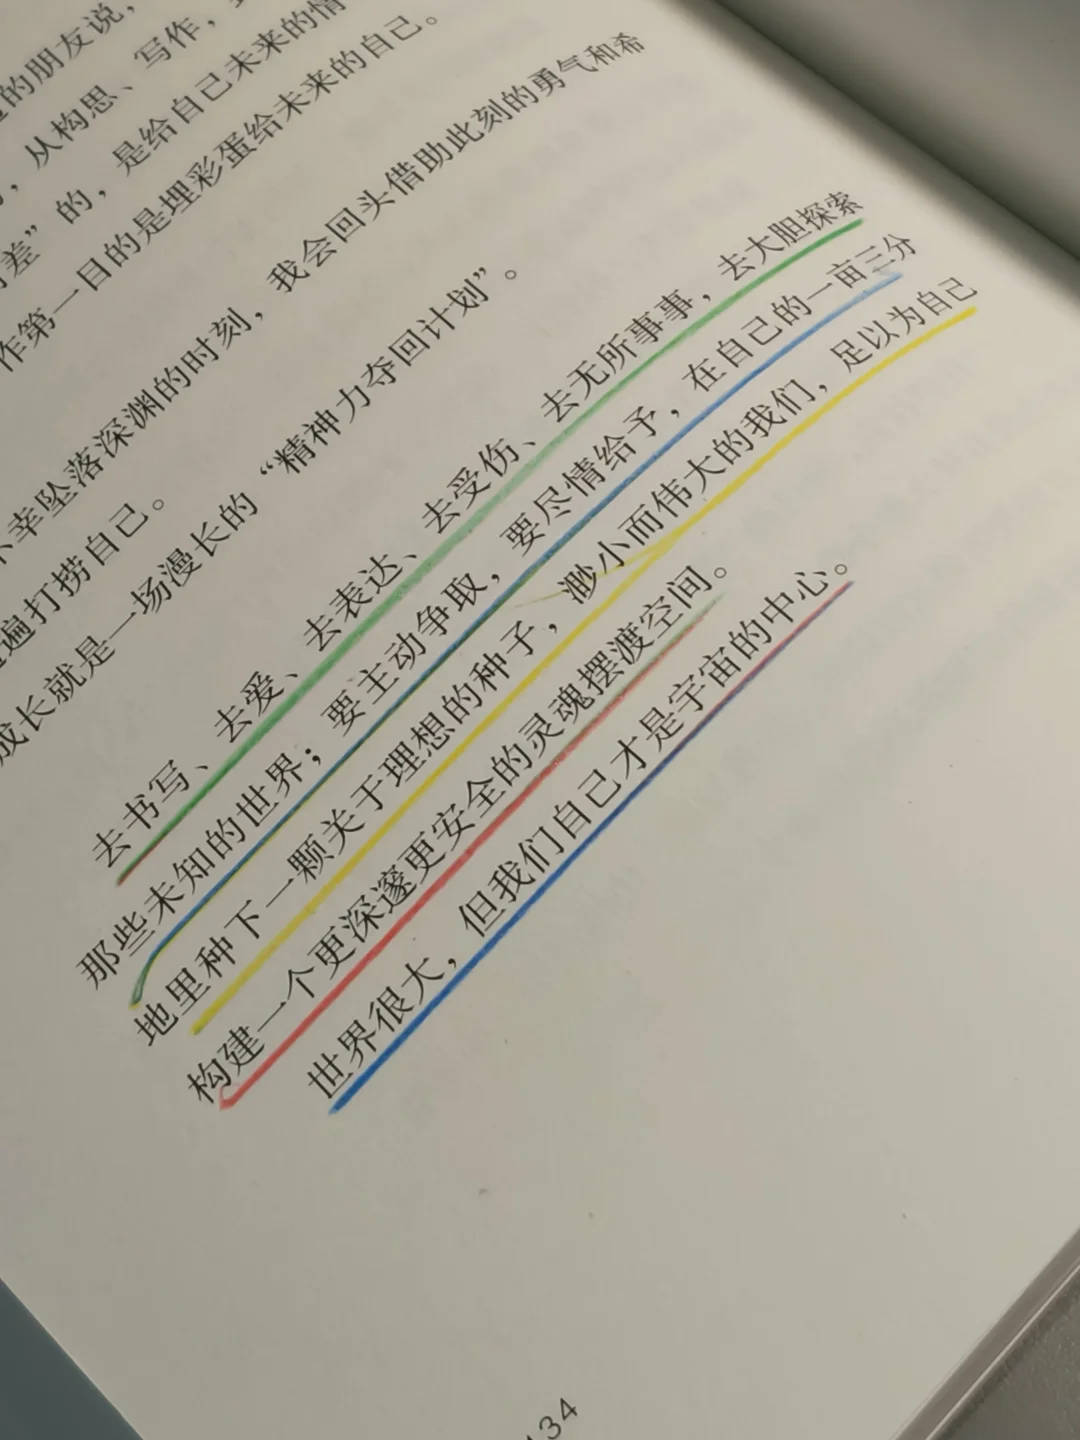 的朋友说，
，从构思、写作，
差”的，是给自己未来的情
作第一目的是埋彩蛋给未来的自己。
幸坠落深渊的时刻，我会回头借助此刻的勇气和希
遍打捞自己。
成长就是一场漫长的“精神力夺回计划”。
去书写、去爱、去表达、去受伤、去无所事事，去大胆探索
那些未知的世界；要主动争取，要尽情给予，在自己的一亩三分
地里种下一颗关于理想的种子，渺小而伟大的我们，足以为自己
构建一个更深邃更安全的灵魂摆渡空间。
世界很大，但我们自己才是宇宙的中心。
134